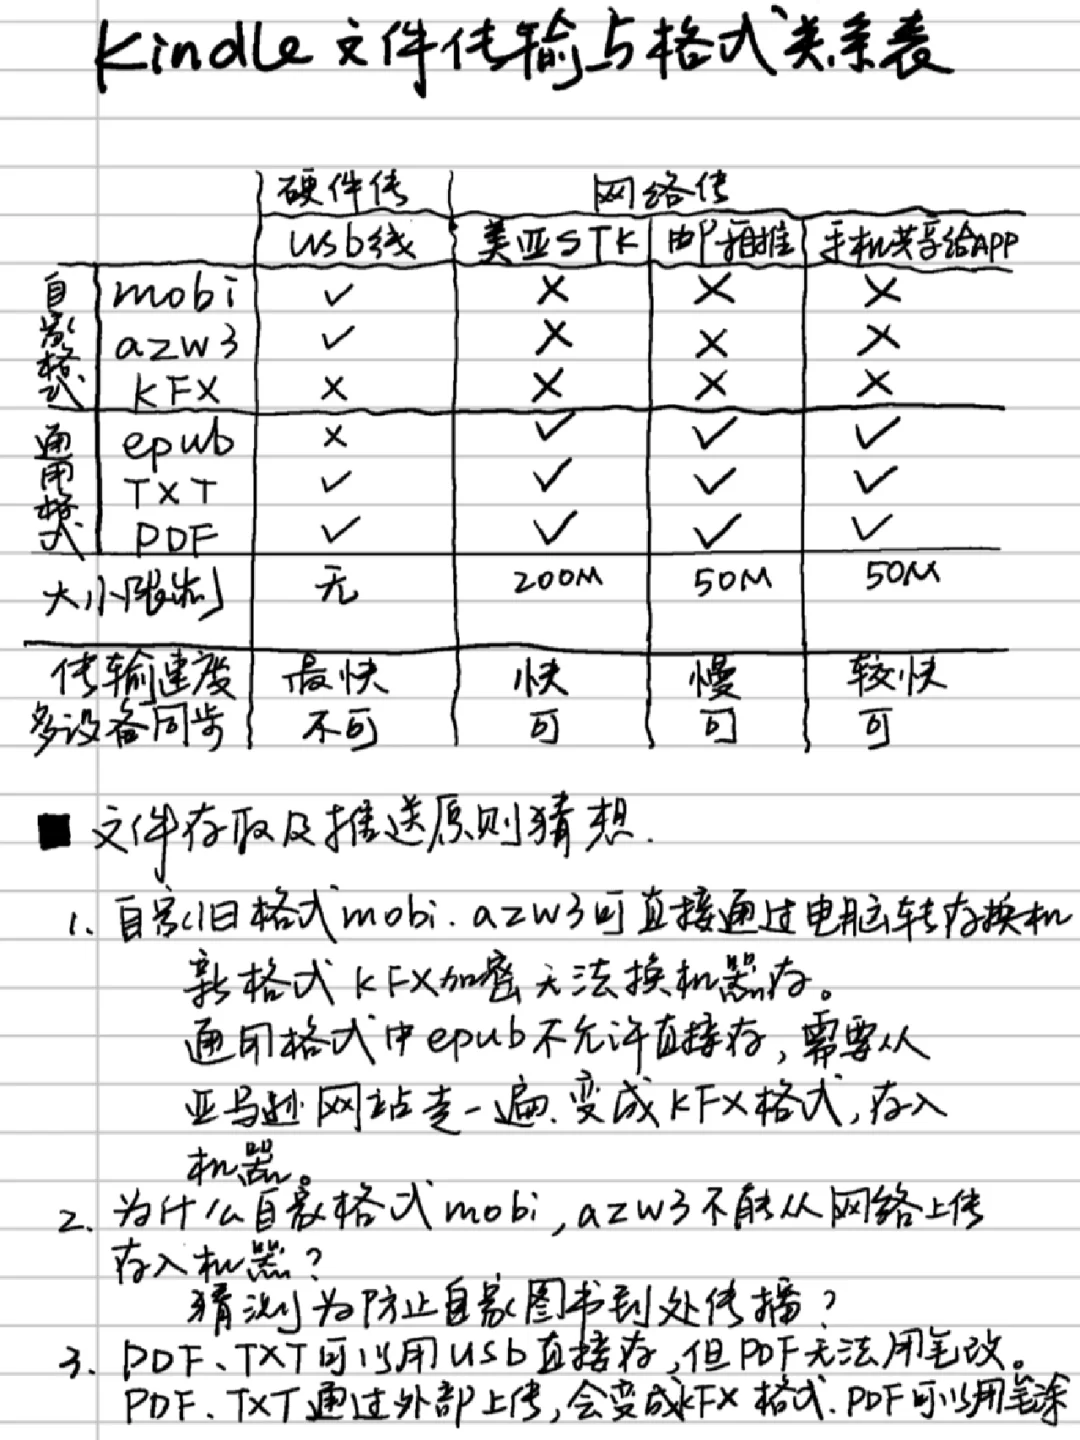 Kindle 文件传输与格式关系表
硬件传 网络传
usb线 美亚STK 邮箱推 手机共享给APP
自家格式
mobi ✓ × × ×
azw3 ✓ × × ×
KFX × × × ×
通用格式
epub × ✓ ✓ ✓
TXT ✓ ✓ ✓ ✓
PDF ✓ ✓ ✓ ✓
大小限制 无 200M 50M 50M
传输速度 最快 快 慢 较快
多设备同步 不可 可 可 可
■ 文件存取及推送原则猜想.
1. 自家旧格式mobi.azw3可直接通过电脑转存换机
新格式KFX加密无法换机器存。
通用格式中epub不允许直接存,需要从
亚马逊网站走一遍.变成KFX格式,存入
机器。
2. 为什么自家格式mobi,azw3不能从网络上传
存入机器?
猜测为防止自家图书到处传播?
3. PDF、TXT可以用usb直接存,但PDF无法用笔改。
PDF、TXT通过外部上传,会变成KFX格式.PDF可以用笔涂